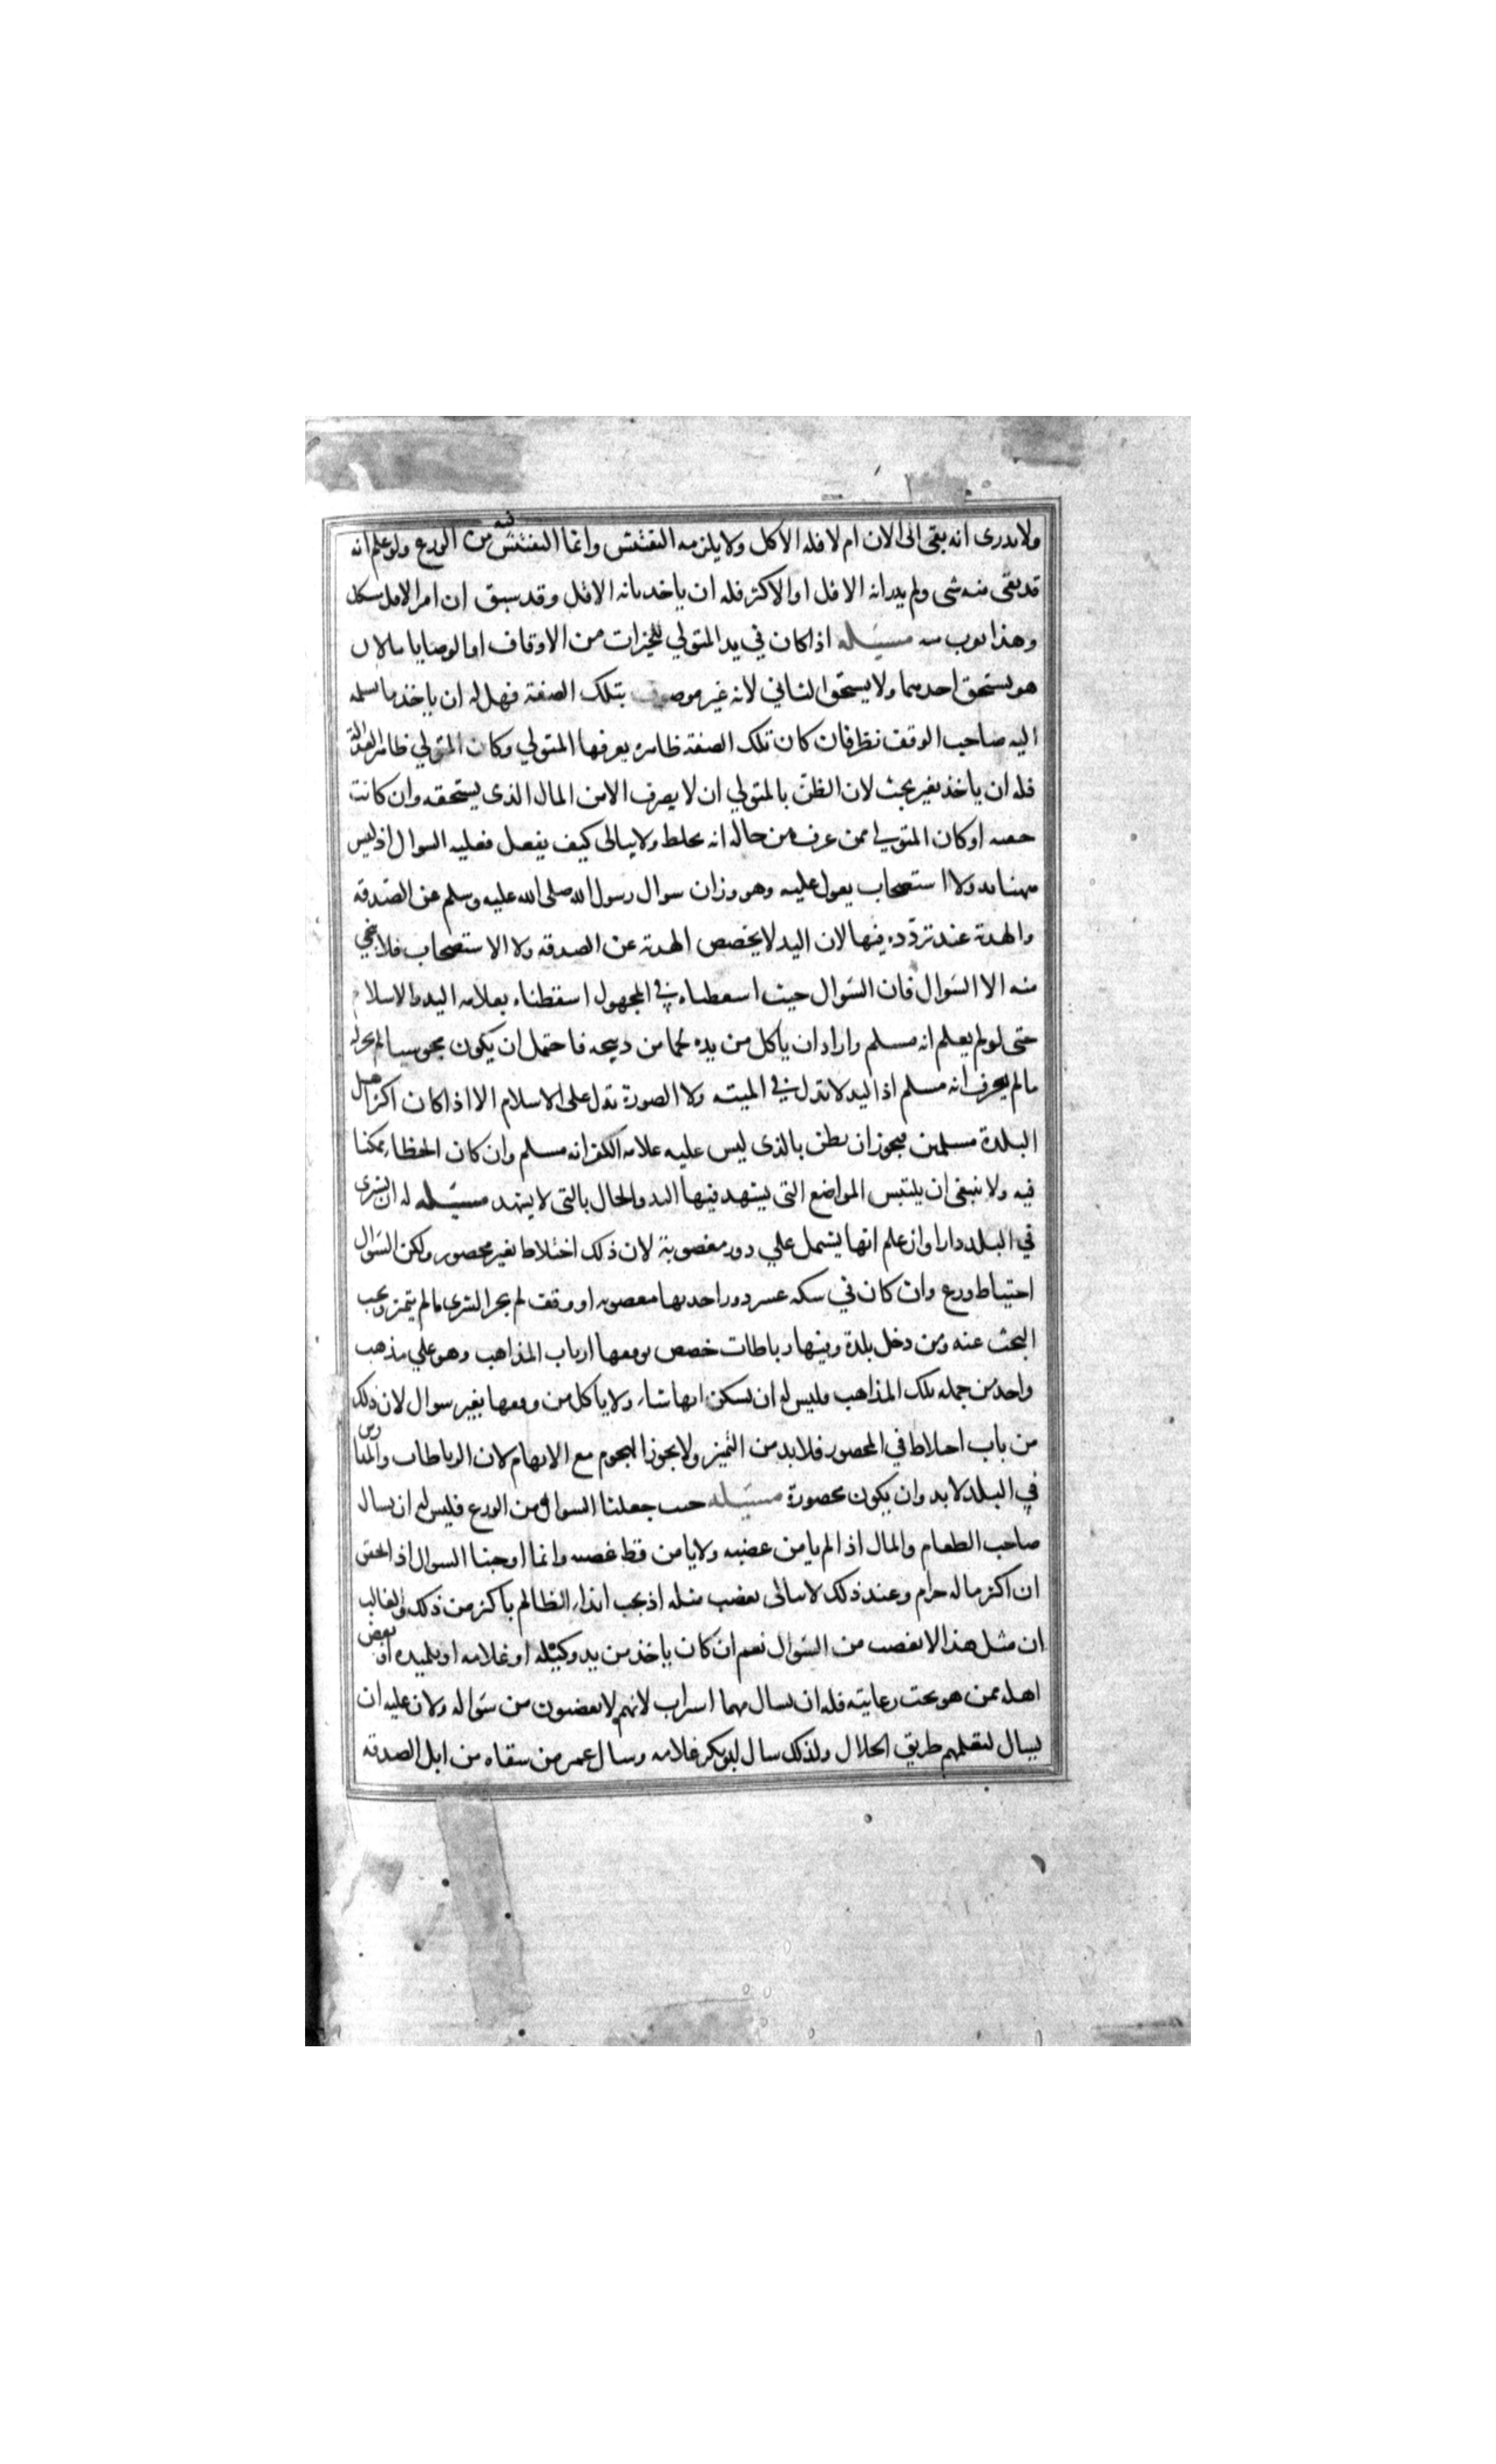 ولا يدرى انه بقى الى الان ام لا فله الاكل ولا يلزمه التفتيش وانما التفتيش فيه من الورع ولو علم انه
قد بقى منه شى ولم يدر انه الاقل او الاكثر فله ان ياخذ بانه الاقل وقد سبق ان امر الاقل مشكل
وهذا يقرب منه مسئله اذا كان في يد المتولي للخيرات من الاوقاف او الوصايا مالان
هو يستحق احدهما ولا يستحق الثاني لانه غير موصوف بتلك الصفة فهل له ان ياخذ ما يسلمه
اليه صاحب الوقف نظر فان كان تلك الصفة ظاهرة يعرفها المتولي وكان المتولي ظاهر العدالة
فله ان ياخذ بغير بحث لان الظن بالمتولي ان لا يصرف الا من المال الذى يستحقه وان كانت
خفيه او كان المتولي ممن عرف من حاله انه يخلط ولا يبالى كيف يفعل فعليه السوال اذ ليس
ههنا يد ولا استصحاب يعول عليه وهو وزان سوال رسول الله صلى الله عليه وسلم عن الصدقه
والهدية عند تردده فيها لان اليد لا يخصص الهدية عن الصدقه ولا الاستصحاب فلا ينجي
منه الا السوال فان السوال حيث اسقطناه في المجهول اسقطناه بعلامه اليد والاسلام
حتى لو لم يعلم انه مسلم واراد ان ياكل من يده لحما من ذبيحه فاحتمل ان يكون مجوسيا لم يجز له
ما لم يعرف انه مسلم اذ اليد لا تدل في الميته ولا الصورة تدل على الاسلام الا اذا كان اكثر اهل
البلدة مسلمين فيجوز ان يظن بالذى ليس عليه علامه الكفر انه مسلم وان كان الخطا ممكنا
فيه ولا ينبغى ان يلتبس المواضع التى يشهد فيها اليد والحال بالتى لا يشهد مسئله له ان يشترى
في البلد دارا وان علم انها يشمل علي دور مغصوبة لان ذلك اختلاط بغير محصور ولكن السوال
احتياط ورع وان كان في سكه عشر دور احديها مغصوبه او وقف لم يجز الشرى ما لم يتميز ويجب
البحث عنه ومن دخل بلدة وفيها رباطات خصص بوقفها ارباب المذاهب وهو علي مذهب
واحد من جمله تلك المذاهب فليس له ان يسكن ايها شاء ولا ياكل من وقفها بغير سوال لان ذلك
من باب اختلاط في المحصور فلابد من التميز ولا يجوز الهجوم مع الابهام لان الرباطات والمدارس
في البلد لابد وان يكون محصورة مسئله حيث جعلنا السوال من الورع فليس له ان يسال
صاحب الطعام والمال اذا لم يامن غضبه ولا يامن قط غضبه وانما اوجبنا السوال اذا تحقق
ان اكثر ماله حرام وعند ذلك لا يبالى بغضب مثله اذ يجب ايذاء الظالم باكثر من ذلك والغالب
ان مثل هذا لا يغضب من السوال نعم ان كان ياخذ من يد وكيله او غلامه او تلميذه او بعض
اهله ممن هو تحت رعايته فله ان يسال مهما استراب لانهم لا يغضبون من سواله ولان عليه ان
يسال ليعلمهم طريق الحلال ولذلك سال ابو بكر غلامه وسال عمر من سقاه من ابل الصدقه